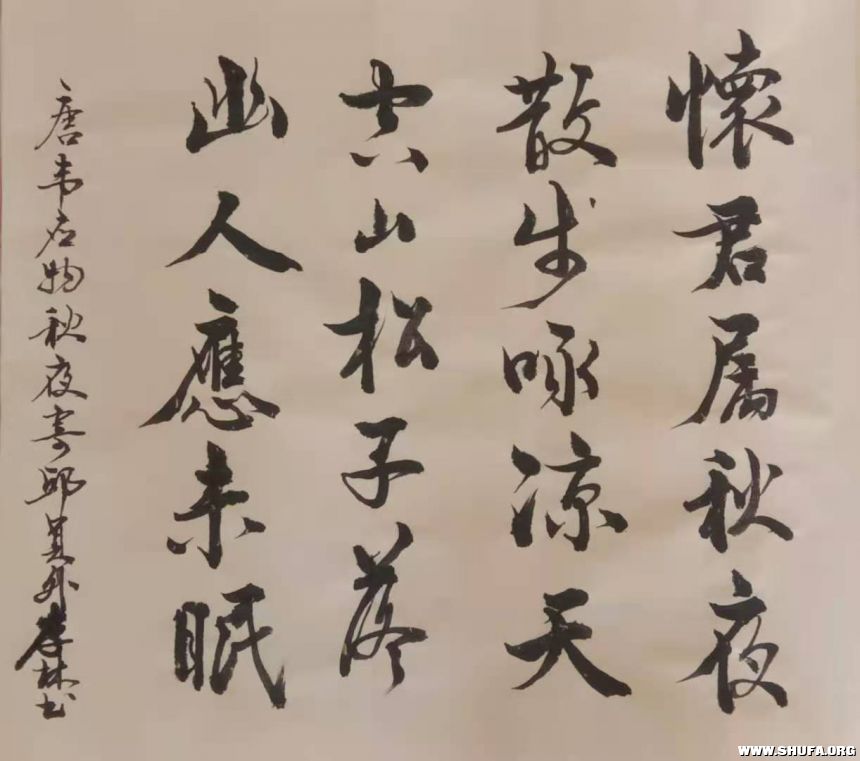 懷君属秋夜
散步咏涼天
空山松子落
幽人應未眠
唐韦应物秋夜寄邱员外 林书
WWW.SHUFA.ORG